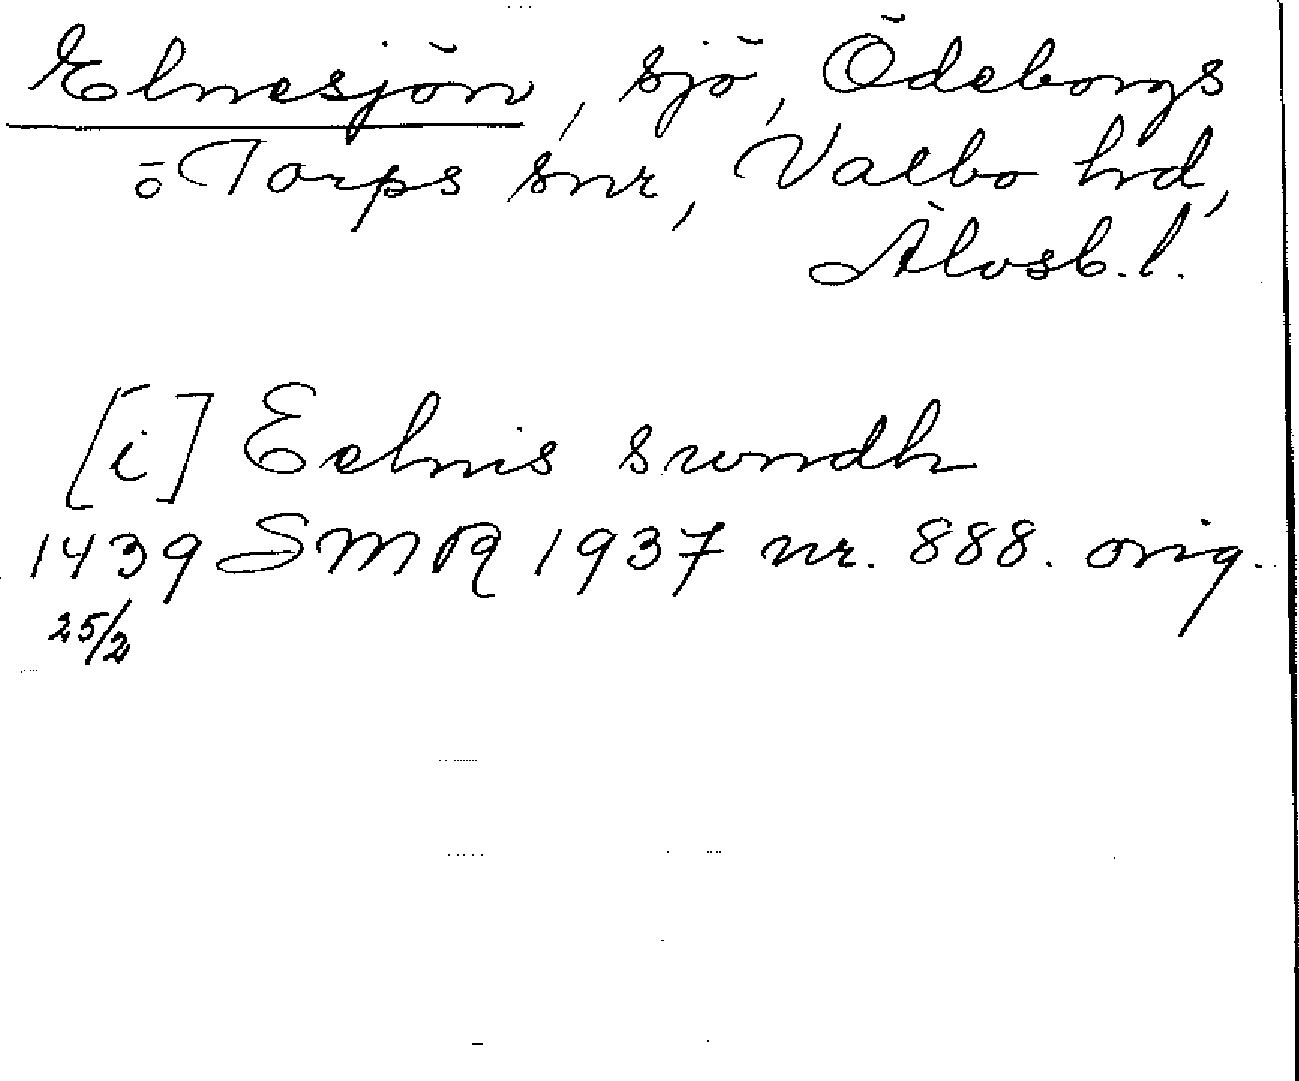 Elnesjön, sjö, Ödeborgs
o Torps snr, Valbo hd,
Älvsb. l.
[i] Eelnis swndh
1439 SMR 1937 nr. 888. orig.
25/2